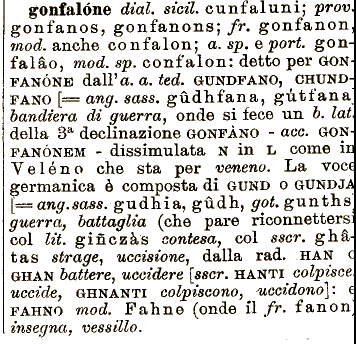 gonfalóne dial. sicil. cunfaluni; prov.
gonfanos, gonfanons; fr. gonfanon,
mod. anche confalon; a. sp. e port. gon-
falâo, mod. sp. confalon: detto per GON-
FANÓNE dall'a. a. ted. GUNDFANO, CHUND-
FANO [= ang. sass. gûdhfana, gútfana
bandiera di guerra, onde si fece un b. lat.
della 3ª declinazione GONFÀNO - acc. GON-
FANÓNEM - dissimulata N in L come in
Veléno che sta per veneno. La voce
germanica è composta di GUND O GUNDJA
[= ang. sass. gudhia, gûdh, got. gunths
guerra, battaglia (che pare riconnettersi
col lit. giñczàs contesa, col sscr. ghâ-
tas strage, uccisione, dalla rad. HAN o
GHAN battere, uccidere [sscr. HANTI colpisce
uccide, GHNANTI colpiscono, uccidono]: e
FAHNO mod. Fahne (onde il fr. fanon)
insegna, vessillo.